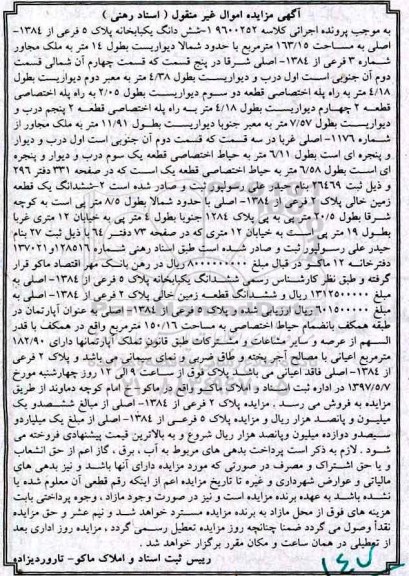 آگهی مزایده اموال غیر منقول ( اسناد رهنی )
به موجب پرونده اجرائی کلاسه ۹۶۰۰۲۵۲ ۱-شش دانگ یکبابخانه پلاک ۵ فرعی از ۱۳۸۴-
اصلی به مساحت ۱۶۳/۱۵ مترمربع با حدود شمالا دیواریست بطول ۱۴ متر به ملک مجاور
شماره ۳ فرعی از ۱۳۸۴- اصلی شرقا در پنج قسمت که قسمت چهارم آن شمالی قسمت
دوم آن جنوبی است اول درب و دیواریست بطول ۴/۳۸ متر به معبر دوم دیواریست بطول
۴/۱۸ متر به راه پله اختصاصی قطعه دو سوم دیواریست بطول ۲/۰۵ به راه پله اختصاصی
قطعه ۲ چهارم دیواریست بطول ۴/۱۸ متر به راه پله اختصاصی قطعه ۲ پنجم درب و
دیواریست بطول ۷/۵۷ متر به معبر جنوبا دیواریست بطول ۱۱/۹۱ متر به ملک مجاور از
شماره ۱۱۷۶- اصلی غربا در سه قسمت که قسمت دوم آن جنوبی است اول درب و دیوار
و پنجره ای است بطول ۶/۱۱ متر به حیاط اختصاصی قطعه یک سوم درب و دیوار و پنجره
ای است بطول ۶/۵۸ متر به حیاط اختصاصی قطعه یک است که در صفحه ۳۳۱ دفتر ۲۹۶
و ذیل ثبت ۲۶۴۶۹ بنام حیدر علی رسولپور ثبت و صادر شده است ۲-ششدانگ یک قطعه
زمین خالی پلاک ۲ فرعی از ۱۳۸۴- اصلی با حدود شمالا بطول ۸/۵ متر پی است به کوچه
شرقا بطول ۲۰/۵ متر پی به پی پلاک ۱۲۸۴ جنوبا بطول ۴ متر پی به خیابان ۱۲ متری غربا
بطول ۱۹ متر پی است به خیابان ۱۲ متری که در صفحه ۷۳ دفتر ۶۴ با ذیل ثبت ۲۷ بنام
حیدر علی رسولپور ثبت و صادر شده است طبق اسناد رهنی شماره ۱۲۸۵۱۶و۱۳۷۰۲۱
دفترخانه ۱۲ ماکو در قبال مبلغ ۸۰۰۰۰۰۰۰۰۰ ریال در رهن بانک مهر اقتصاد ماکو قرار
گرفته و طبق نظر کارشناس رسمی ششدانگ یکبابخانه پلاک ۵ فرعی از ۱۳۸۴- اصلی به
مبلغ ۱۳۱۲۵۰۰۰۰۰ ریال و ششدانگ قطعه زمین خالی پلاک ۲ فرعی از ۱۳۸۴- اصلی به
مبلغ ۶۰۱۵۰۰۰۰۰ ریال ارزیابی شده و پلاک ۵ فرعی از ۱۳۸۴- اصلی به عنوان آپارتمان در
طبقه همکف بانضمام حیاط اختصاصی به مساحت ۱۵۰/۱۶ مترمربع واقع در همکف با قدر
السهم از عرصه و سایر مشاعات و مشترکات طبق قانون تملک آپارتمانها دارای ۱۸۲/۹۰
مترمربع اعیانی با مصالح آجر پخته و طاق ضربی و نمای سیمانی می باشد و پلاک ۲ فرعی
از ۱۳۸۴- اصلی فاقد اعیانی می باشد پلاک فوق از ساعت ۹ الی ۱۲ روز چهارشنبه مورخ
۱۳۹۷/۵/۷ در اداره ثبت اسناد و املاک ماکو واقع در ماکو- خ امام کوچه دماوند از طریق
مزایده به فروش می رسد . مزایده پلاک ۲ فرعی از ۱۳۸۴- اصلی از مبالغ ششصدو یک
میلیون و پانصد هزار ریال و مزایده پلاک ۵ فرعی از ۱۳۸۴- اصلی از مبلغ یک میلیاردو
سیصدو دوازده میلیون وپانصد هزار ریال شروع و به بالاترین قیمت پیشنهادی فروخته می
شود . لازم به ذکر است پرداخت بدهی های مربوط به آب ، برق ، گاز اعم از حق انشعاب
و یا حق اشتراک و مصرف در صورتی که مورد مزایده دارای آنها باشد و نیز بدهی های
مالیاتی و عوارض شهرداری و غیره تا تاریخ مزایده اعم از اینکه رقم قطعی آن معلوم شده یا
نشده باشد به عهده برنده مزایده است و نیز در صورت وجود مازاد ، وجوه پرداختی بابت
هزینه های فوق از محل مازاد به برنده مزایده مسترد خواهد شد و نیم عشر و حق مزایده
نقداً وصول می گردد ضمنا چنانچه روز مزایده تعطیل رسمی گردد ، مزایده روز اداری بعد
از تعطیلی در همان ساعت و مکان مقرر برگزار خواهد شد .
رییس ثبت اسناد و املاک ماکو- تاروردیزاده